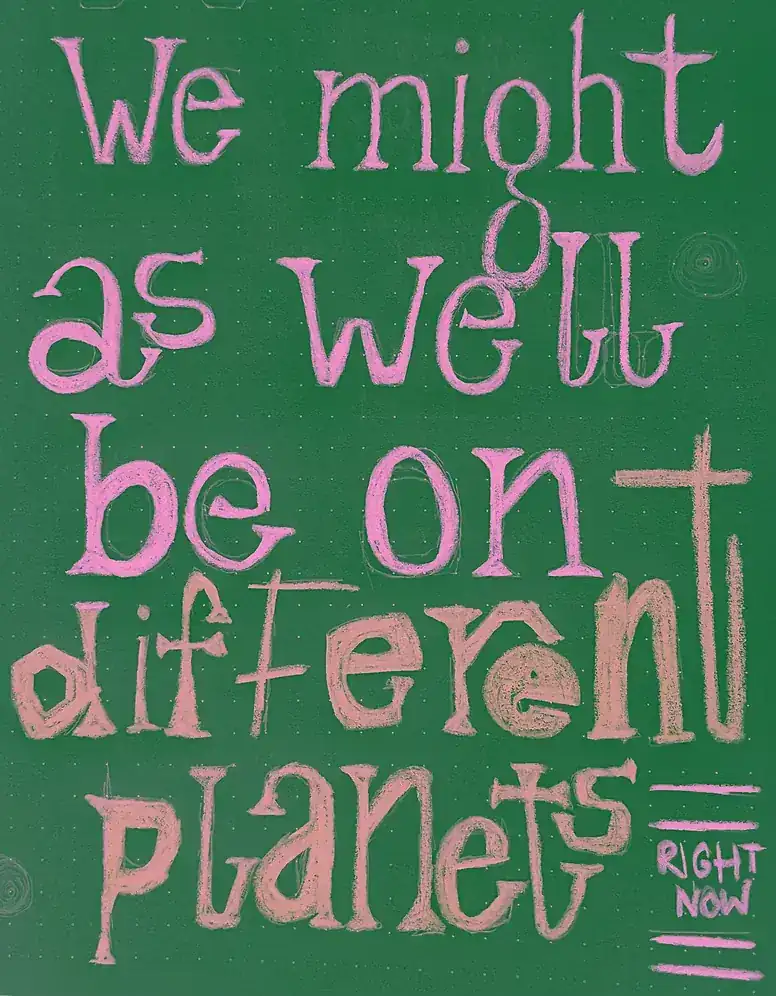 We might
as well
be on
different
planets
RIGHT
NOW